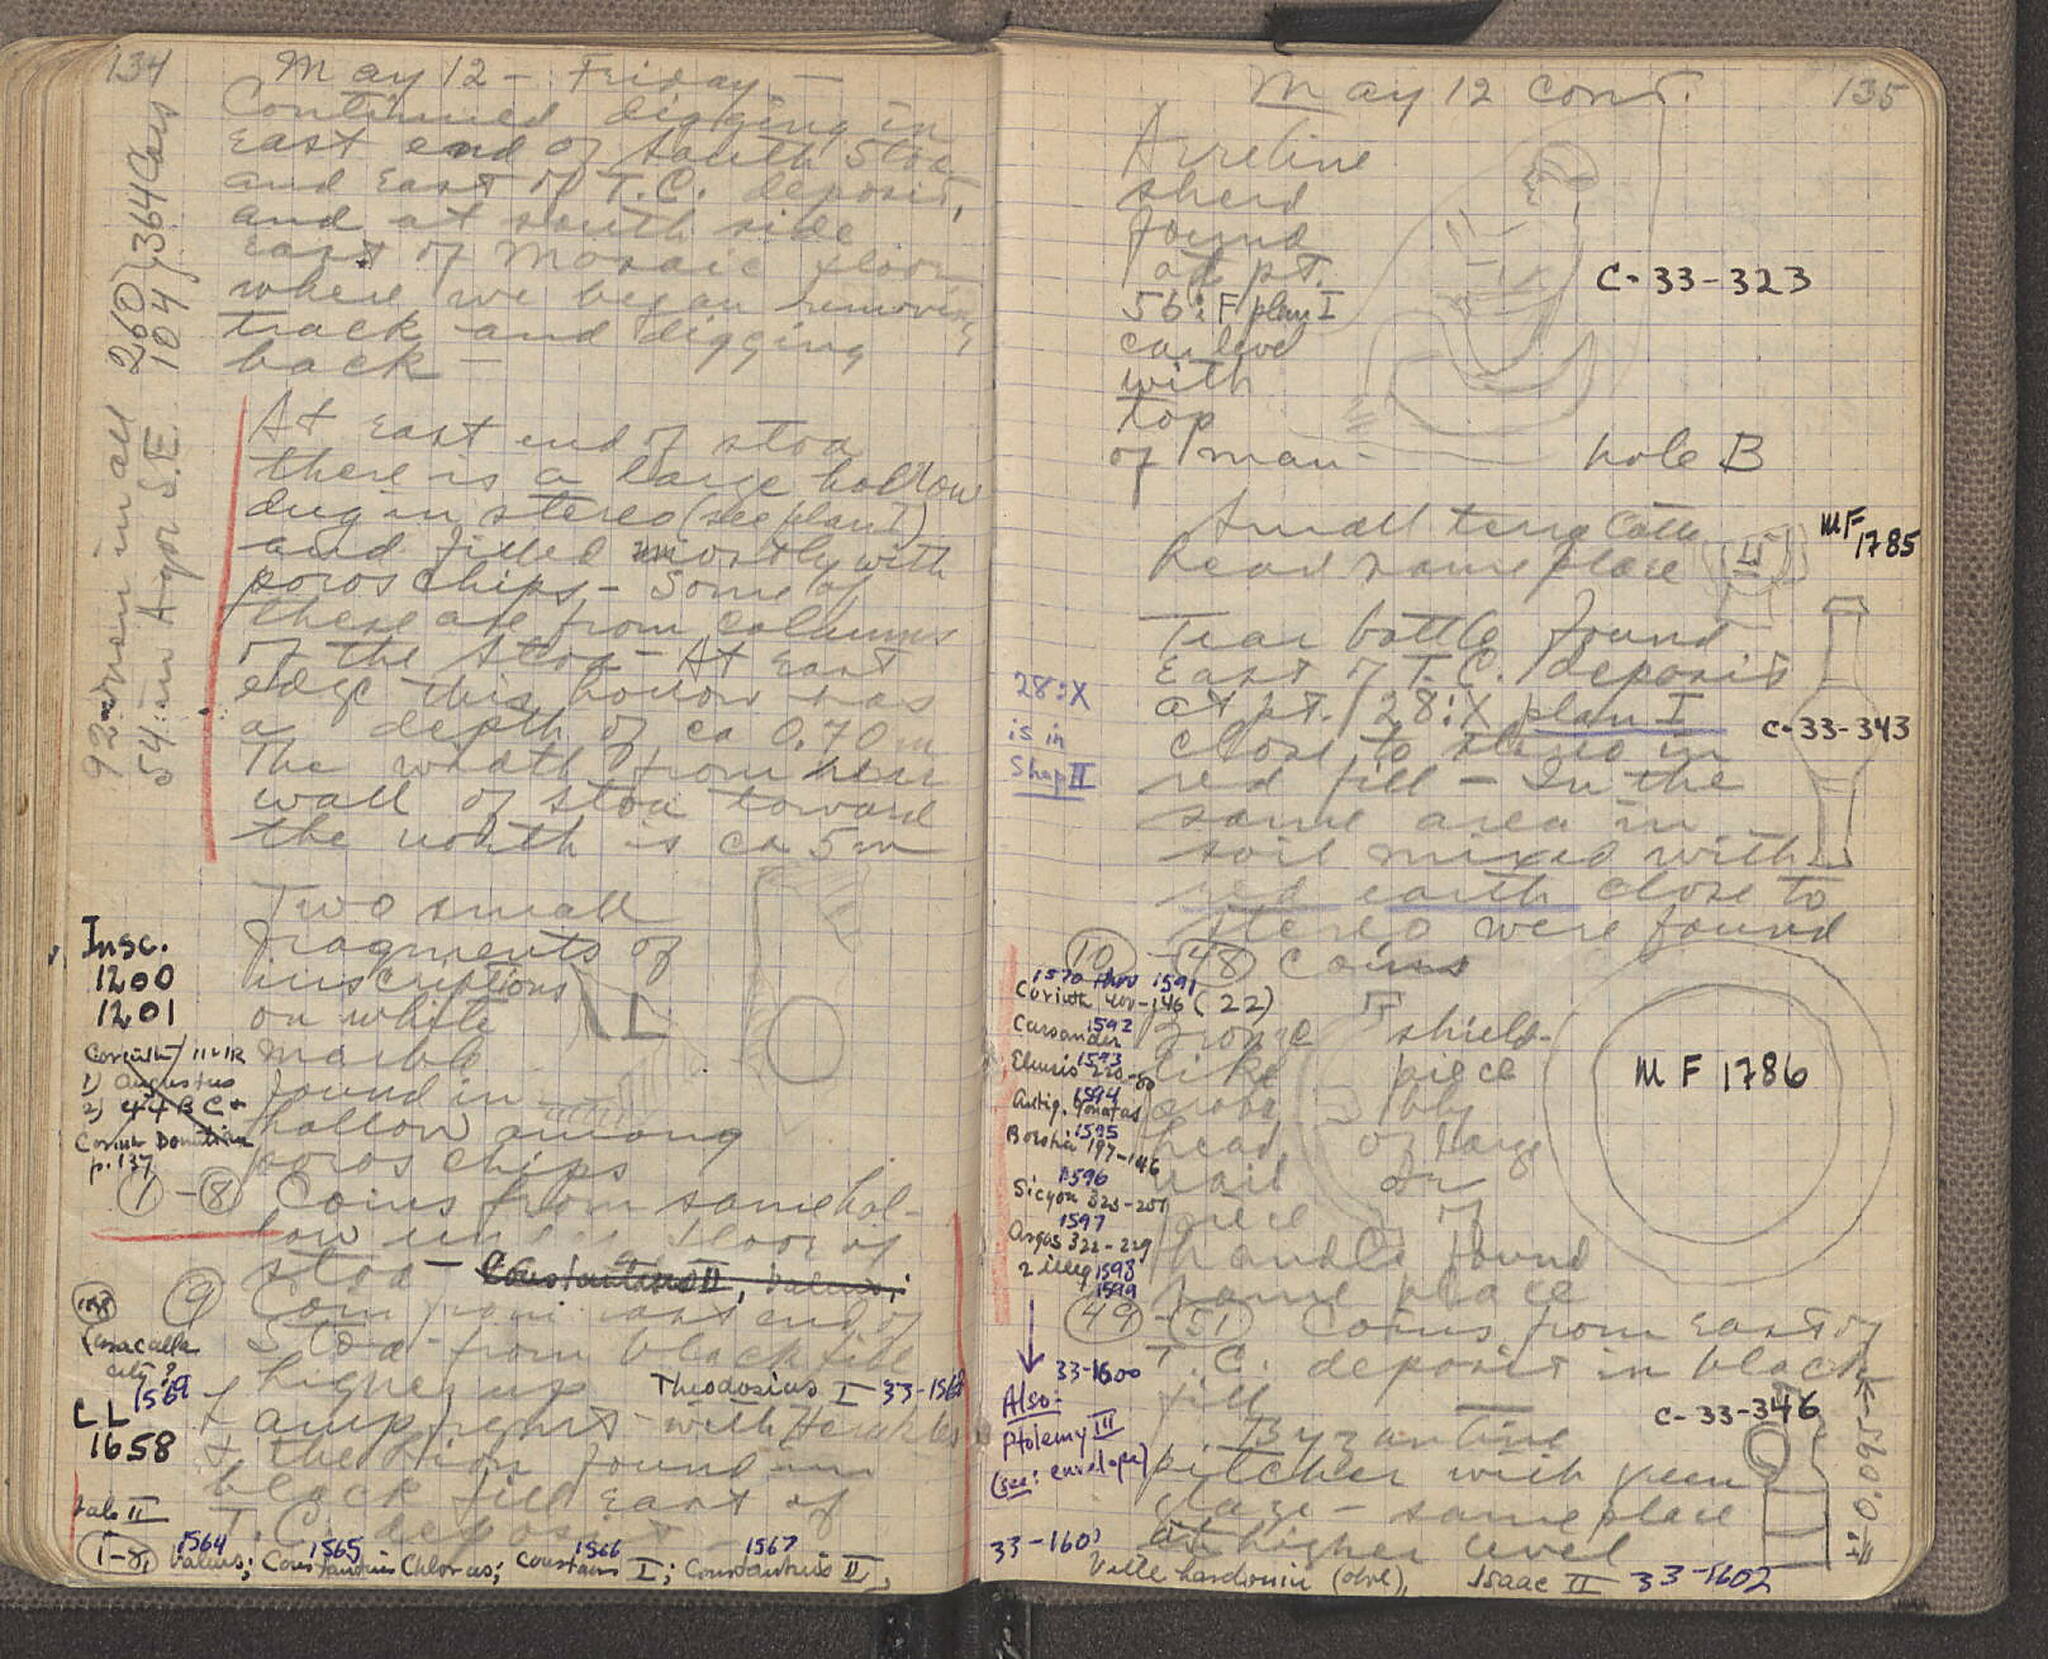 134
May 12 - Friday -
Continued digging in
East end of South Stoa
and East of T.C. deposit,
and at south side
East of Mosaic floor
where we began removing
track and digging
back -
92 men in all 260 } 364 Cars
54 in Agor S.E. 104
At East end of stoa
there is a large hollow
dug in stereo (see plan I)
and filled mostly with
poros chips - Some of
these are from columns
of the Stoa - At East
edge this hollow was
a depth of ca 0.70 m
The width from rear
wall of stoa toward
the north is ca 5 m
Two small
fragments of
inscriptions
on white
marble
found in
hollow among
poros chips
Insc.
1200
1201
Corinth
1) Augustus
2) 44 BC+
Corinth Domitian
p. 137
1 - 8 Coins from same hol-
low under floor of
stoa - Constantius II, Valens;
9 Coin from east end of
Stoa - from black fill
higher up Theodosius I 33-1568
Caracalla
city?
1569
Lamp fragment with Herakles
+ the Lion found in
black fill East of
T.C. deposit
LL
1658
1-8, 1564 Valens; 1565 Constantius Chlorus; 1566 Constans I; 1567 Constantius II,
May 12 cont. 135
Arretine
sherd
found
at pt.
56:F plan I
ca level
with
top
of man-
hole B
C-33-323
Small terra cotta
head same place
MF
1785
Tear bottle found
East of T.C. deposit
at pt. 28:X plan I
close to stereo in
red fill - In the
same area in
soil mixed with
red earth close to
stereo were found
28:X
is in
Shop II
C-33-343
10 - 48 Coins
1570 thru 1591
Corinth 400-146 (22)
1592
Cassander
1593
Eleusis
1594
Antig. Gonatas
1595
Boeotia 197-146
1596
Sicyon 323-251
1597
Argos 322-229
2 illeg 1598
1599
Bronze shield-
like piece
proba bly
head of large
nail or
piece of
handle found
same place
MF 1786
49 - 51 Coins from East of
T.C. deposit in black
fill
33-1600
Also:
Ptolemy III
(see: envelope)
Byzantine
pitcher with green
glaze - same place
at higher level
C-33-346
0.095
33-1601
Villehardouin (dbl), Isaac II 33-1602